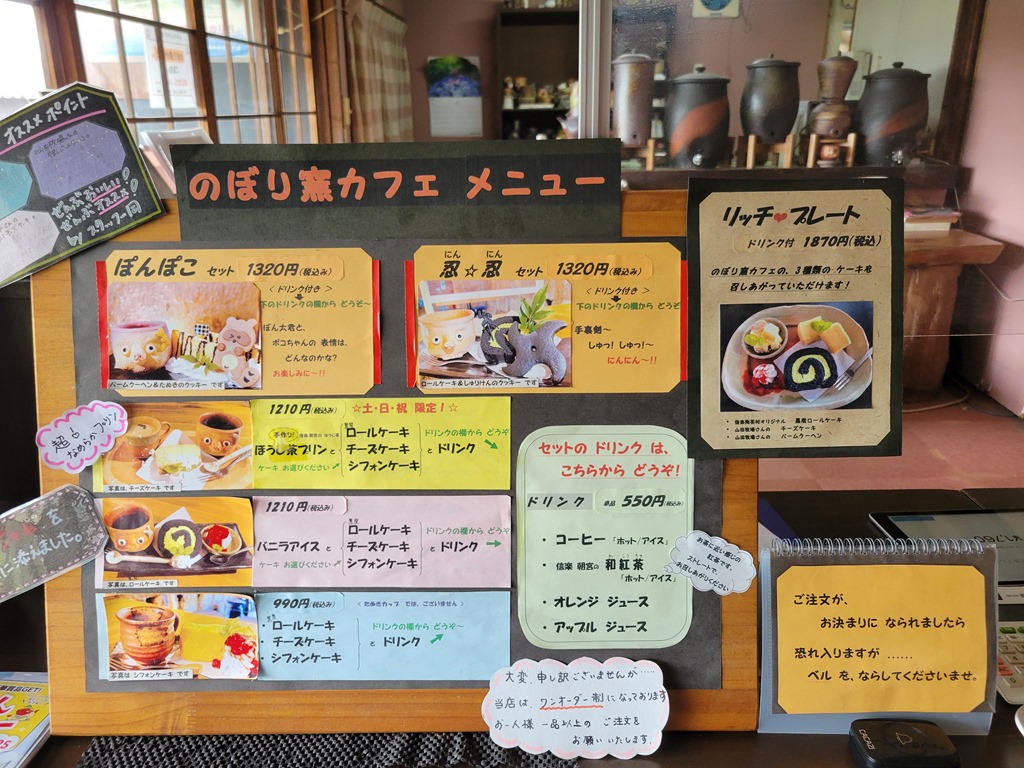 オススメ ポイント
ぜんぶ おいしい!!
ぜんぶ オススメ!
by スタッフ一同
のぼり窯カフェ メニュー
ぽんぽこ セット 1320円(税込み)
< ドリンク付き >
下のドリンクの欄から どうぞ~
ぽん太君と、
ポコちゃんの 表情は、
どんなのかな?
お楽しみに~!!
バームクーヘン&たぬきのクッキー です
にん にん
忍☆忍 セット 1320円(税込み)
< ドリンク付き >
下のドリンクの欄から どうぞ~
手裏剣~
しゅっ! しゅっ!~
にんにん~!!
ロールケーキ&しゅりけんのクッキー です
リッチ♥プレート
ドリンク付 1870円(税込)
のぼり窯カフェの、3種類の ケーキを
召しあがっていただけます!
チーズケーキ
山田牧場さんの バームクーヘン
超 なめらかプリン
1210円(税込み) ☆土・日・祝 限定!☆
手作り!
ほうじ茶プリン と
ケーキ お選びください
ロールケーキ
チーズケーキ
シフォンケーキ
と ドリンク
ドリンクの欄から どうぞ
写真は、チーズケーキ です
を
添えました。
1210円(税込み)
バニラアイス と
ケーキ お選びください
ロールケーキ
チーズケーキ
シフォンケーキ
と ドリンク
ドリンクの欄から どうぞ
写真は、ロールケーキ です
990円(税込み) < たぬきカップ では、ございません >
・ ロールケーキ
・ チーズケーキ
・ シフォンケーキ
と ドリンク
ドリンクの欄から どうぞ~
写真は シフォンケーキ です
セットの ドリンク は、
こちらから どうぞ!
ドリンク 単品 550円(税込み)
・ コーヒー 「ホット/アイス」
・ 信楽 朝宮の 和紅茶
「ホット/アイス」
・ オレンジ ジュース
・ アップル ジュース
お茶に近い感じの
紅茶です。
ストレートで、
お召しあがりください
大変、申し訳ございませんが……
当店は、ワンオーダー制になっております
お一人様 一品以上の ご注文を
お願いいたします。
ご注文が、
お決まりに なられましたら
恐れ入りますが ……
ベル を、ならしてくださいませ。